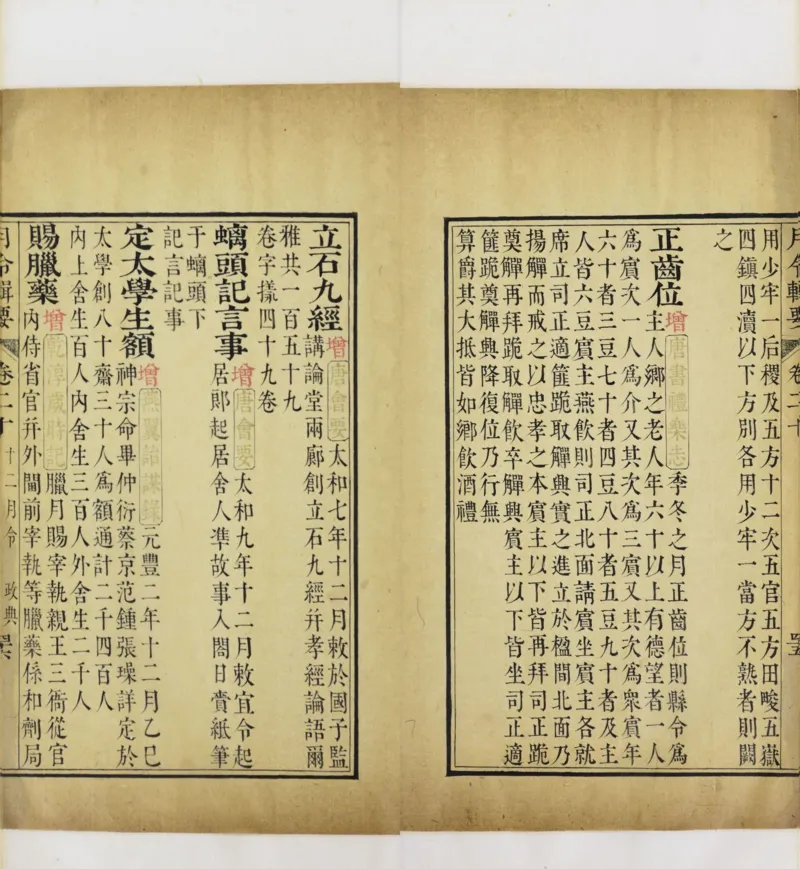 月令輯要 卷二十
用少牢一后稷及五方十二次五官五方田畯五嶽
四鎮四瀆以下方別各用少牢一當方不熟者則闕
之
正齒位 增 唐書禮樂志 季冬之月正齒位則縣令爲
主人鄉之老人年六十以上有德望者一人
爲賓次一人爲介又其次爲三賓又其次爲衆賓年
六十者三豆七十者四豆八十者五豆九十者及主
人皆六豆賓主燕飲則司正北面請賓坐賓主各就
席立司正適篚跪取觶興實之進立於楹間北面乃
揚觶而戒之以忠孝之本賓主以下皆再拜司正跪
奠觶再拜跪取觶飲卒觶興賓主以下皆坐司正適
篚跪奠觶興降復位乃行無
算爵其大抵皆如鄉飲酒禮
立石九經 增 唐會要 太和七年十二月敕於國子監
講論堂兩廊創立石九經幷孝經論語爾
雅共一百五十九
卷字樣四十九卷
螭頭記言事 增 唐會要 太和九年十二月敕宜令起
居郞起居舍人準故事入閤日賫紙筆
于螭頭下
記言記事
定太學生額 增 燕翼詒謀錄 元豐二年十二月乙巳
神宗命畢仲衍蔡京范鍾張璪詳定於
太學創八十齋三十人爲額通計二千四百人
內上舍生百人內舍生三百人外舍生二千人
賜臘藥 增 歲時記 臘月賜宰執親王三衙從官
內侍省官幷外閫前宰執等臘藥係和劑局
月令輯要 卷二十 十二月令 政典